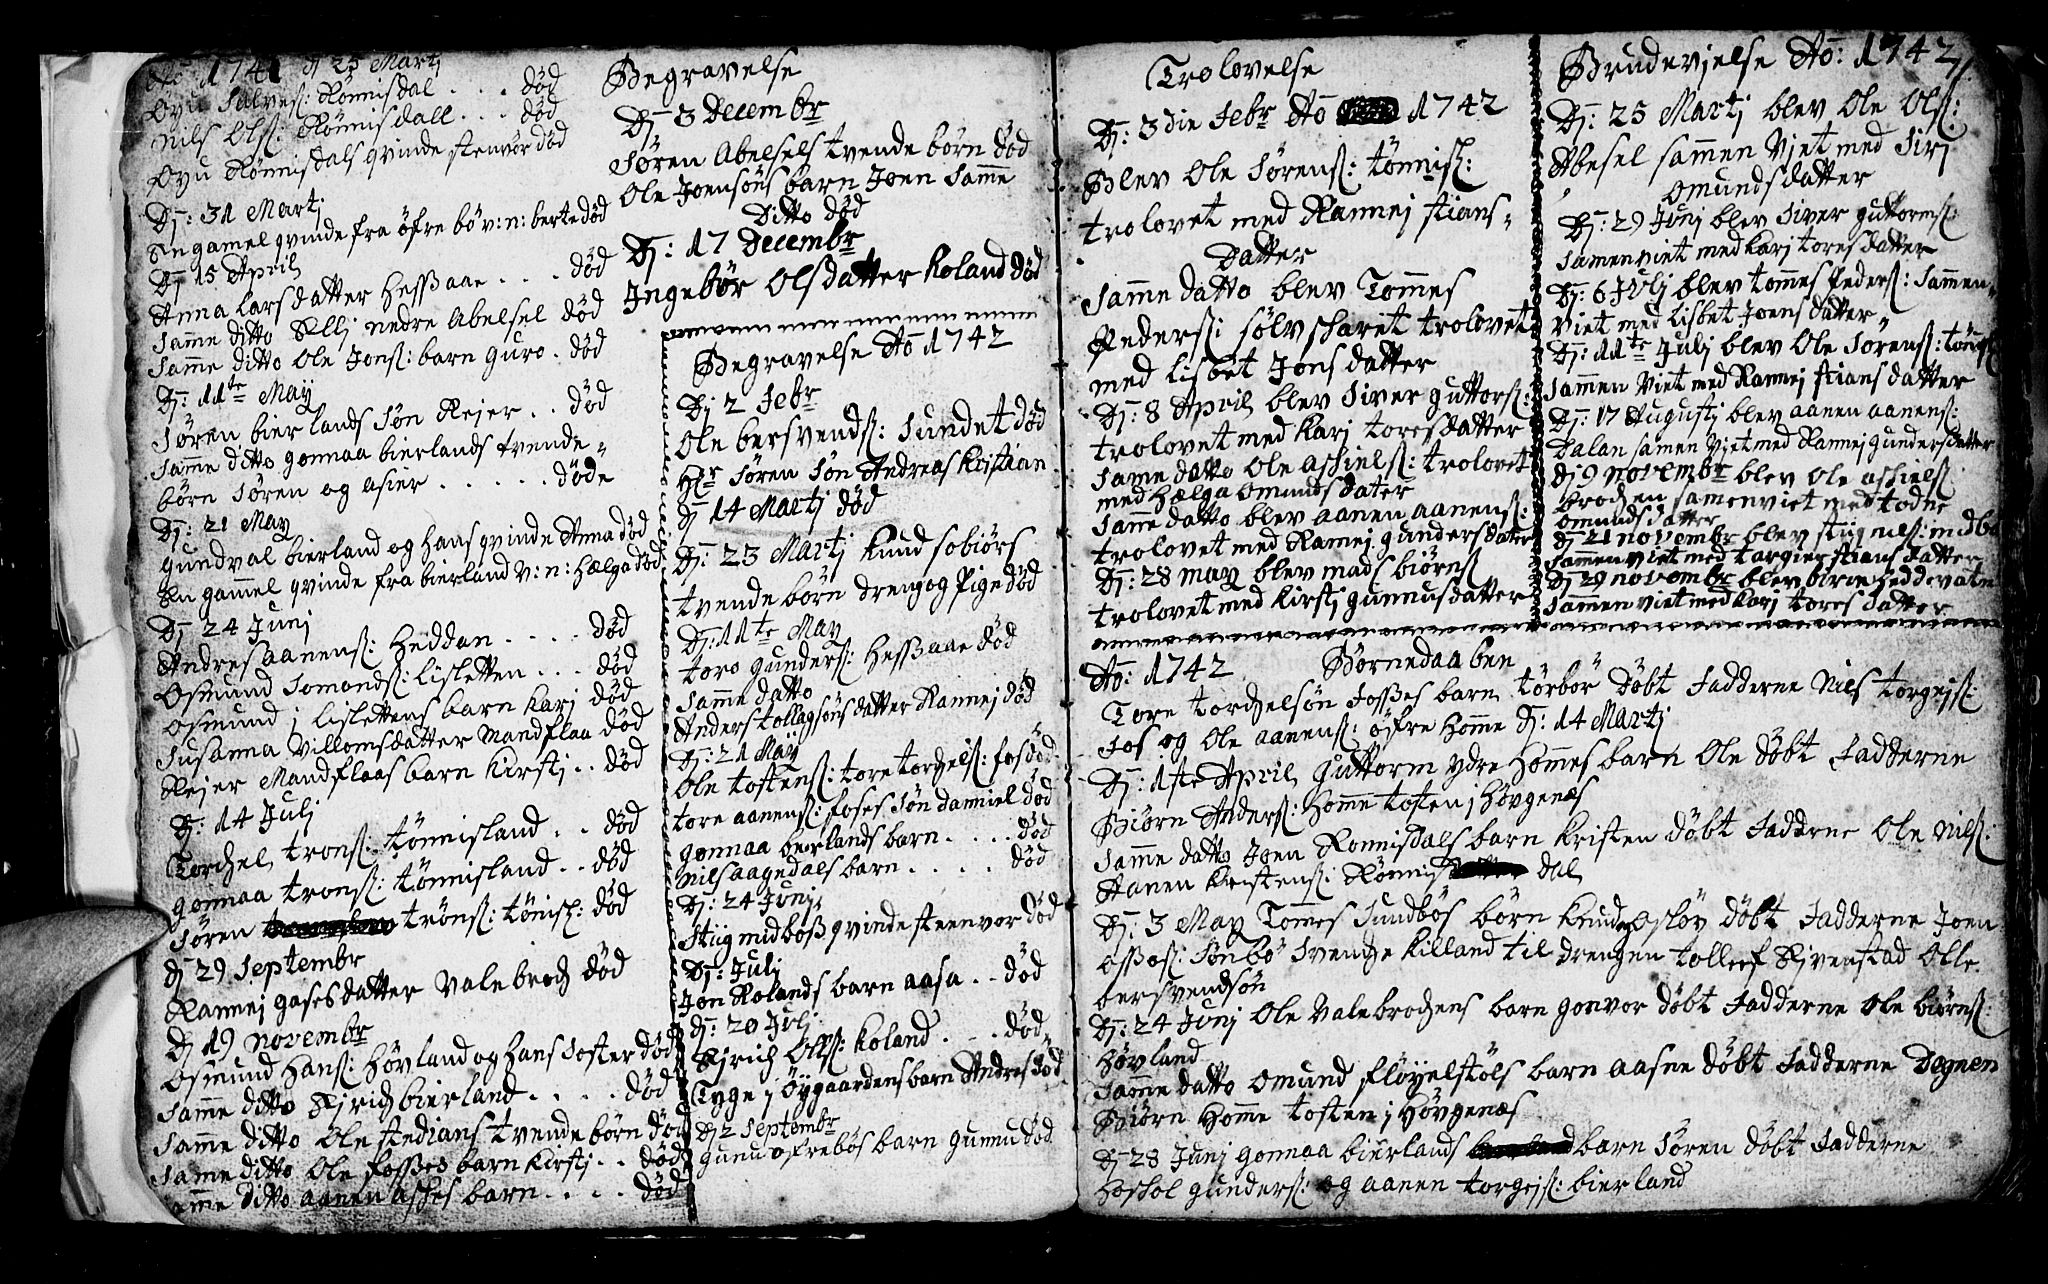 Ao: 1741 d 25 Martj
Oyu Salvesl: Rönnisdal . . . död
Nils Olsl: Rönnisdall . . . död
Oyu Rönnisdals qvinde stenvör död
Dj: 31 Martj
En gamel qvinde fra öfre bö v:n: berte död
Dj 15 April
Anna Larsdatter Hessaae . . . död
Samme ditto Ellj nedre Abelsel död
Samme ditto Ole Jonsl: barn guro . död
Dj: 11te May
Sören bierlands Søn Rejer . . död
Samme ditto gonnaa bierlands tvende
börn Sören og asier . . . . . . döde
Dj: 21 May
gundval bierland og hans qvinde Anna död
En gammel qvinde fra bierland v:n: Hælga död
Dj 24 Junj
Andres aanensl: Heddan . . . . död
Osmund Somondsl: Lisletten . . . död
Osmund j Lislettens barn Karj död
Susanna Villomsdatter Mandflaa död
Rejer Mandflaas barn Kirstj . . död
Dj: 14 Julj
Torchel tronsl: tönnisland . . död
gonnaa tronsl: tönnisland . . död
Sören trönsl: tönisl: död
dj 29 Septembr
Rannej gasesdatter Valebroch död
Dj 19 novembr
Osmund Hansl: Hövland og Hans Soster död
Samme ditto Sirich bierland . . . . död
Samme ditto Ole stedians tvende börn död
Same ditto Ole fosses barn Kirstj . . död
Samme ditto aanen asches barn . . . . död
Begravelse
Dj 3 Decembr
Søren Abelsels tvende börn död
Ole Joensöns barn Joen Samme
Ditto död
Dj: 17 Decembr
Ingebör Olsdatter Koland död
Begravelse Ao 1742
Dj 2 Febr
Ole bersvendsl: Sundet död
Hr Søren Søn Andreas Kristian
Dj 14 Martj död
Dj: 23 Martj Knud sobiörs
tvende börn dreng og Pige död
Dj: 11te May
toro gundersl: Hessaae död
Samme datto
Anders tollagsöns datter Rannej död
Dj: 21 Maÿ
Ole tostensl: tore torchelsl: fos död
tore aanensl: foses Søn Damniel död
gonnaa bierlands barn . . . . död
Nils aagedals barn . . . . . död
Dj: 24 Junj
Stiig midboss qvinde steenvor död
Dj: Julj
Jon Rolands barn aasa . . död
Dj: 20 Julj
Sirich Olsl: Koland . . . död
Tyge j Öygaardens barn Andres död
Dj 2 Septembr
gunu ofrebös barn gunnu död
Trolovelse
Dj: 3 die Febr Ao 1742
Blev Ole Sørensl: tönnisl:
trolovet med Rannej stians-
Datter
Samme datto blev Tommes
Pedersl: sölvscharit trolovet
med Lisbet Jonsdatter
Dj: 8 April blev Siver guttorsl:
trolovet med Karj toresdatter
Same datto Ole aschielsl: trolovet
med Hælga Omundsdater
Samme datto blev aanen aanensl:
trolovet med Rannej gundersdater
Dj: 28 may blev mads biörnsl
trolovet med Kirstj gunnusdatter
Brudevjelse Ao: 1742
Dj: 25 Martj blev Ole Olsl:
Abesel sammen Vjet med Sirj
Omundsdatter
Dj: 29 Junj blev Siver guttormsl:
Samen viet med Karj toresdatter
Dj: 6 Julj blev tommes Pedersl: Sammen
Viet med Lisbet Joensdatter
Dj: 11te Julj blev Ole Sørensl: tönisl
Sammen Viet med Rannej stians datter
Dj: 17 Augustj blev aanen aanensl:
Dalan samen Vjet med Rannej gundersdatter
Dj 9 novembr blev Ole aschielsl
brochen samen viet med todne
Omundsdatter
Dj 21 novembr blev stiig nilsl: midbo
Sammen viet med targier stiansdatter
Dj 29 novembr blev Heddevatn
Sammen viet med Karj tores datter
Ao: 1742 Børnedaaben
Tore torchelsön fosses barn törbör döbt Fadderne Nils torgejsl:
Fos og Ole aanensl: öfre Homme Dj: 14 Martj
Dj: 1ste April Guttorm ydre Hommes barn Ole döbt Fadderne
Biörn Andersl: Homme tosten j Hövgenæs
Samme datto Joen Ronnisdals barn Kristen döbt Faddrne Ole Nilsl:
Aanen Kristensl: Rönnis dal
Dj: 3 May Tomes Sundbös börn Knud og Osløv döbt Fadderne Joen
Osßosl: Sönbö Svenge Killand til drengen tollef Rivenstad Olle
bersvendsön
Dj: 24 Junj Ole Valebrochens barn gonvor döbt Fadderne Ole biörnsl:
Hövland
Samme datto Omund flöyelstöls barn aasne döbt Fadderne Degnen
Biörn Homme tosten j Hövgenæs
Dj 28 Junj gonnaa bierlands barn Sören döbt Fadderne
Hoskol gundersl: og aanen torgejsl: bierland